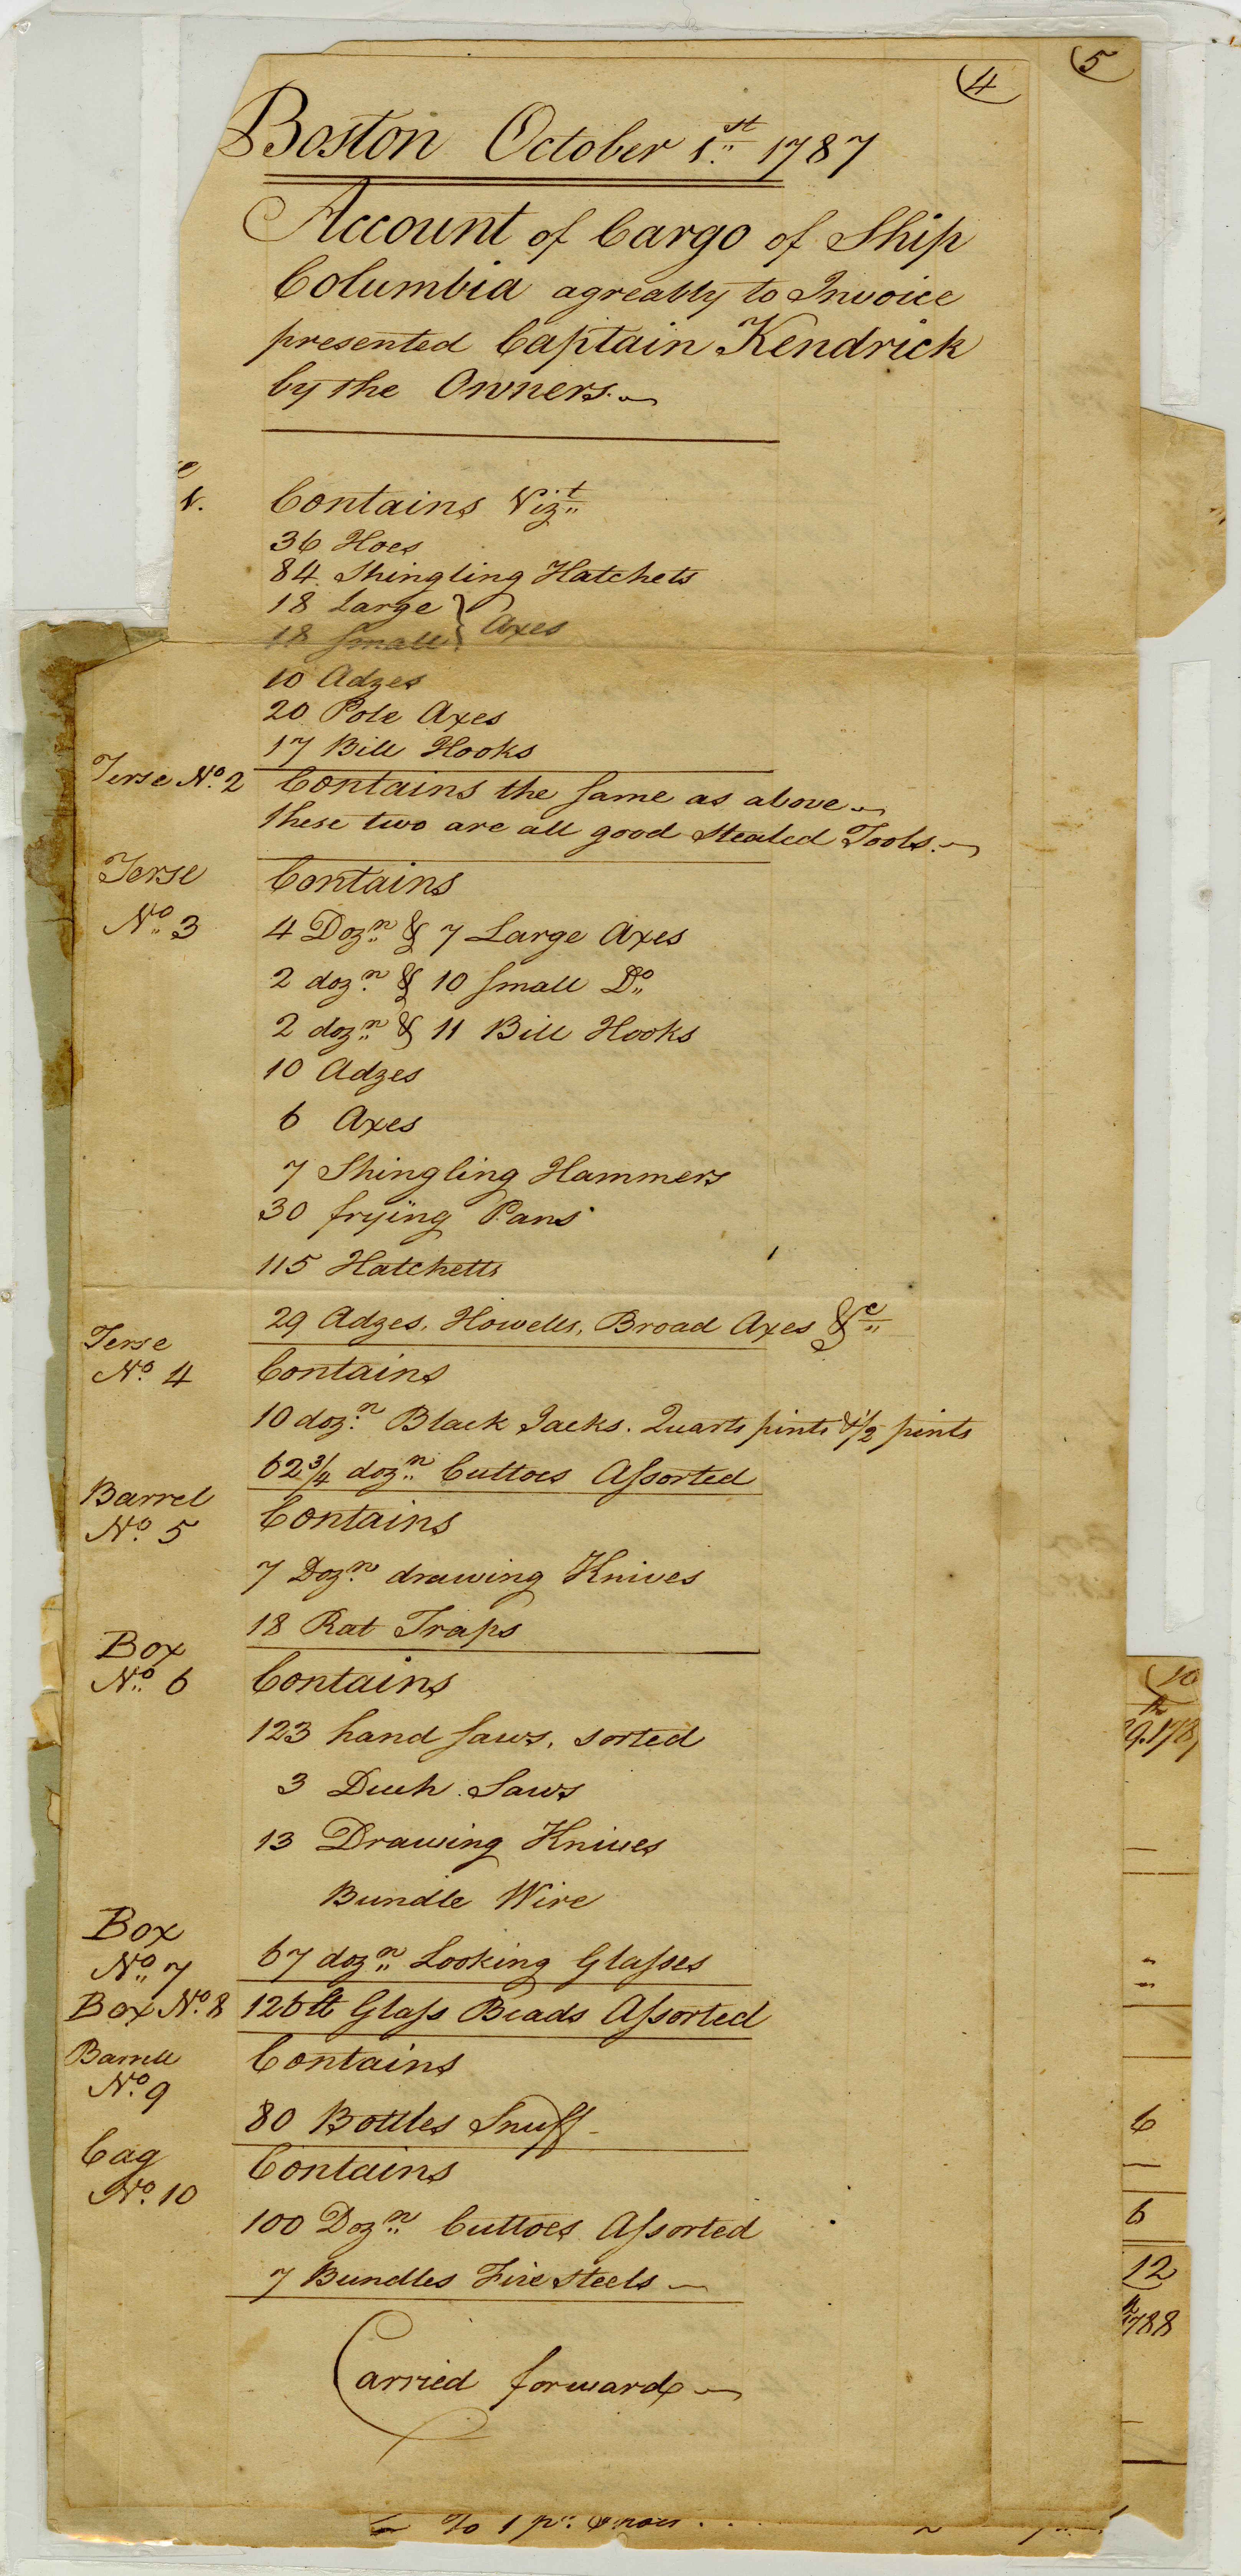 (4
(5
Boston October 1st 1787
Account of Cargo of Ship
Columbia agreably to Invoice
presented Captain Kendrick
by the Owners.
Contains Vizt
36 Hoes
84 Shingling Hatchets
18 Large } Axes
18 Small
10 Adzes
20 Pole Axes
17 Bill Hooks
Terse No. 2 Contains the same as above
these two are all good Stealed Tools.
Terse Contains
No. 3 4 Dozn & 7 Large Axes
2 dozn & 10 Small Do
2 dozn & 11 Bill Hooks
10 Adzes
6 Axes
7 Shingling Hammers
30 frying Pans
115 Hatchetts
29 Adzes, Howells, Broad Axes &c
Terse
No. 4 Contains
10 dozn Black Jacks. Quarts pints & 1/2 pints
62 3/4 dozn Cuttoes Assorted
Barrel
No. 5 Contains
7 Dozn drawing Knives
18 Rat Traps
Box
No. 6 Contains
123 hand Saws, sorted
3 Saws
13 Drawing Knives
Bundle Wire
Box
No. 7 67 dozn Looking Glasses
Box No. 8 126 lb Glass Beads Assorted
Barrell Contains
No. 9
80 Bottles Snuff
Cag Contains
No. 10
100 Dozn Cuttoes Assorted
7 Bundles Fire Steels
Carried forward
(10
6
6
12
788
To 1 pr.